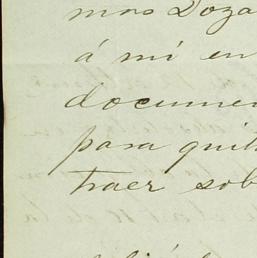 mos Doza
á mí en
documen
para quit
traer sob